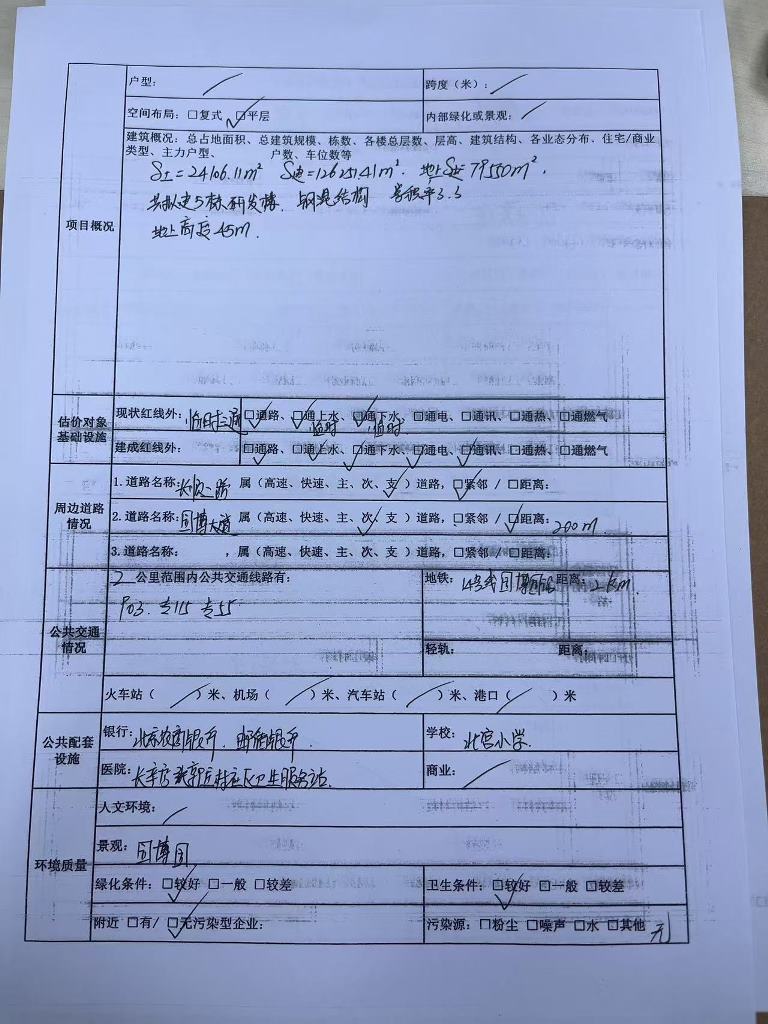 户型： ／ 跨度（米）：／
空间布局：□复式 ☑平层 内部绿化或景观：／
项目概况
建筑概况：总占地面积、总建筑规模、栋数、各楼总层数、层高、建筑结构、各业态分布、住宅/商业
类型、主力户型、 户数、车位数等
S土=24106.11m² S建=126251.41m². 地上S建79550m².
共拟建5栋研发楼. 钢混结构 容积率3.3
地上高度45m.
估价对象
基础设施
现状红线外：临时三通 ☑通路、☑通上水、☑通下水、☑通电、□通讯、□通热、□通燃气
临时 临时
建成红线外： ☑通路、☑通上水、☑通下水、☑通电、☑通讯、□通热、□通燃气
周边道路
情况
1.道路名称：长顺二路 属（高速、快速、主、次、支✓）道路，☑紧邻 / □距离：
2.道路名称：园博大道 属（高速、快速、主✓、次、支 ）道路，□紧邻 / ☑距离：200m
3.道路名称： ，属（高速、快速、主、次、支 ）道路，□紧邻 / □距离：
公共交通
情况
2 公里范围内公共交通线路有：
P03. 专115 专55.
地铁： 距离：2km.
轻轨： 距离：
火车站（ ／ ）米、机场（ ／ ）米、汽车站（ ／ ）米、港口（ ／ ）米
公共配套
设施
银行：北京农商银行. 邮储银行. 学校：北宫小学.
医院： 社区卫生服务站. 商业：／
环境质量
人文环境：／
景观：园博园
绿化条件：☑较好 □一般 □较差 卫生条件：☑较好 □一般 □较差
附近 □有/ ☑无污染型企业： 污染源：□粉尘 □噪声 □水 □其他 无